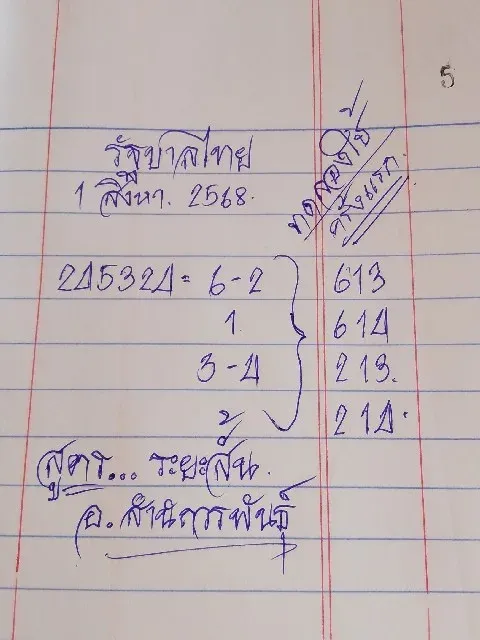 5
รัฐบาลไทย
1 สิงหา. 2568.
ทดลองใช้
ครั้งแรก.
245324 = 6-2
1
3-4
613
614
213.
214.
สูตร... ระยะสั้น.
อ. สานสัมพันธุ์